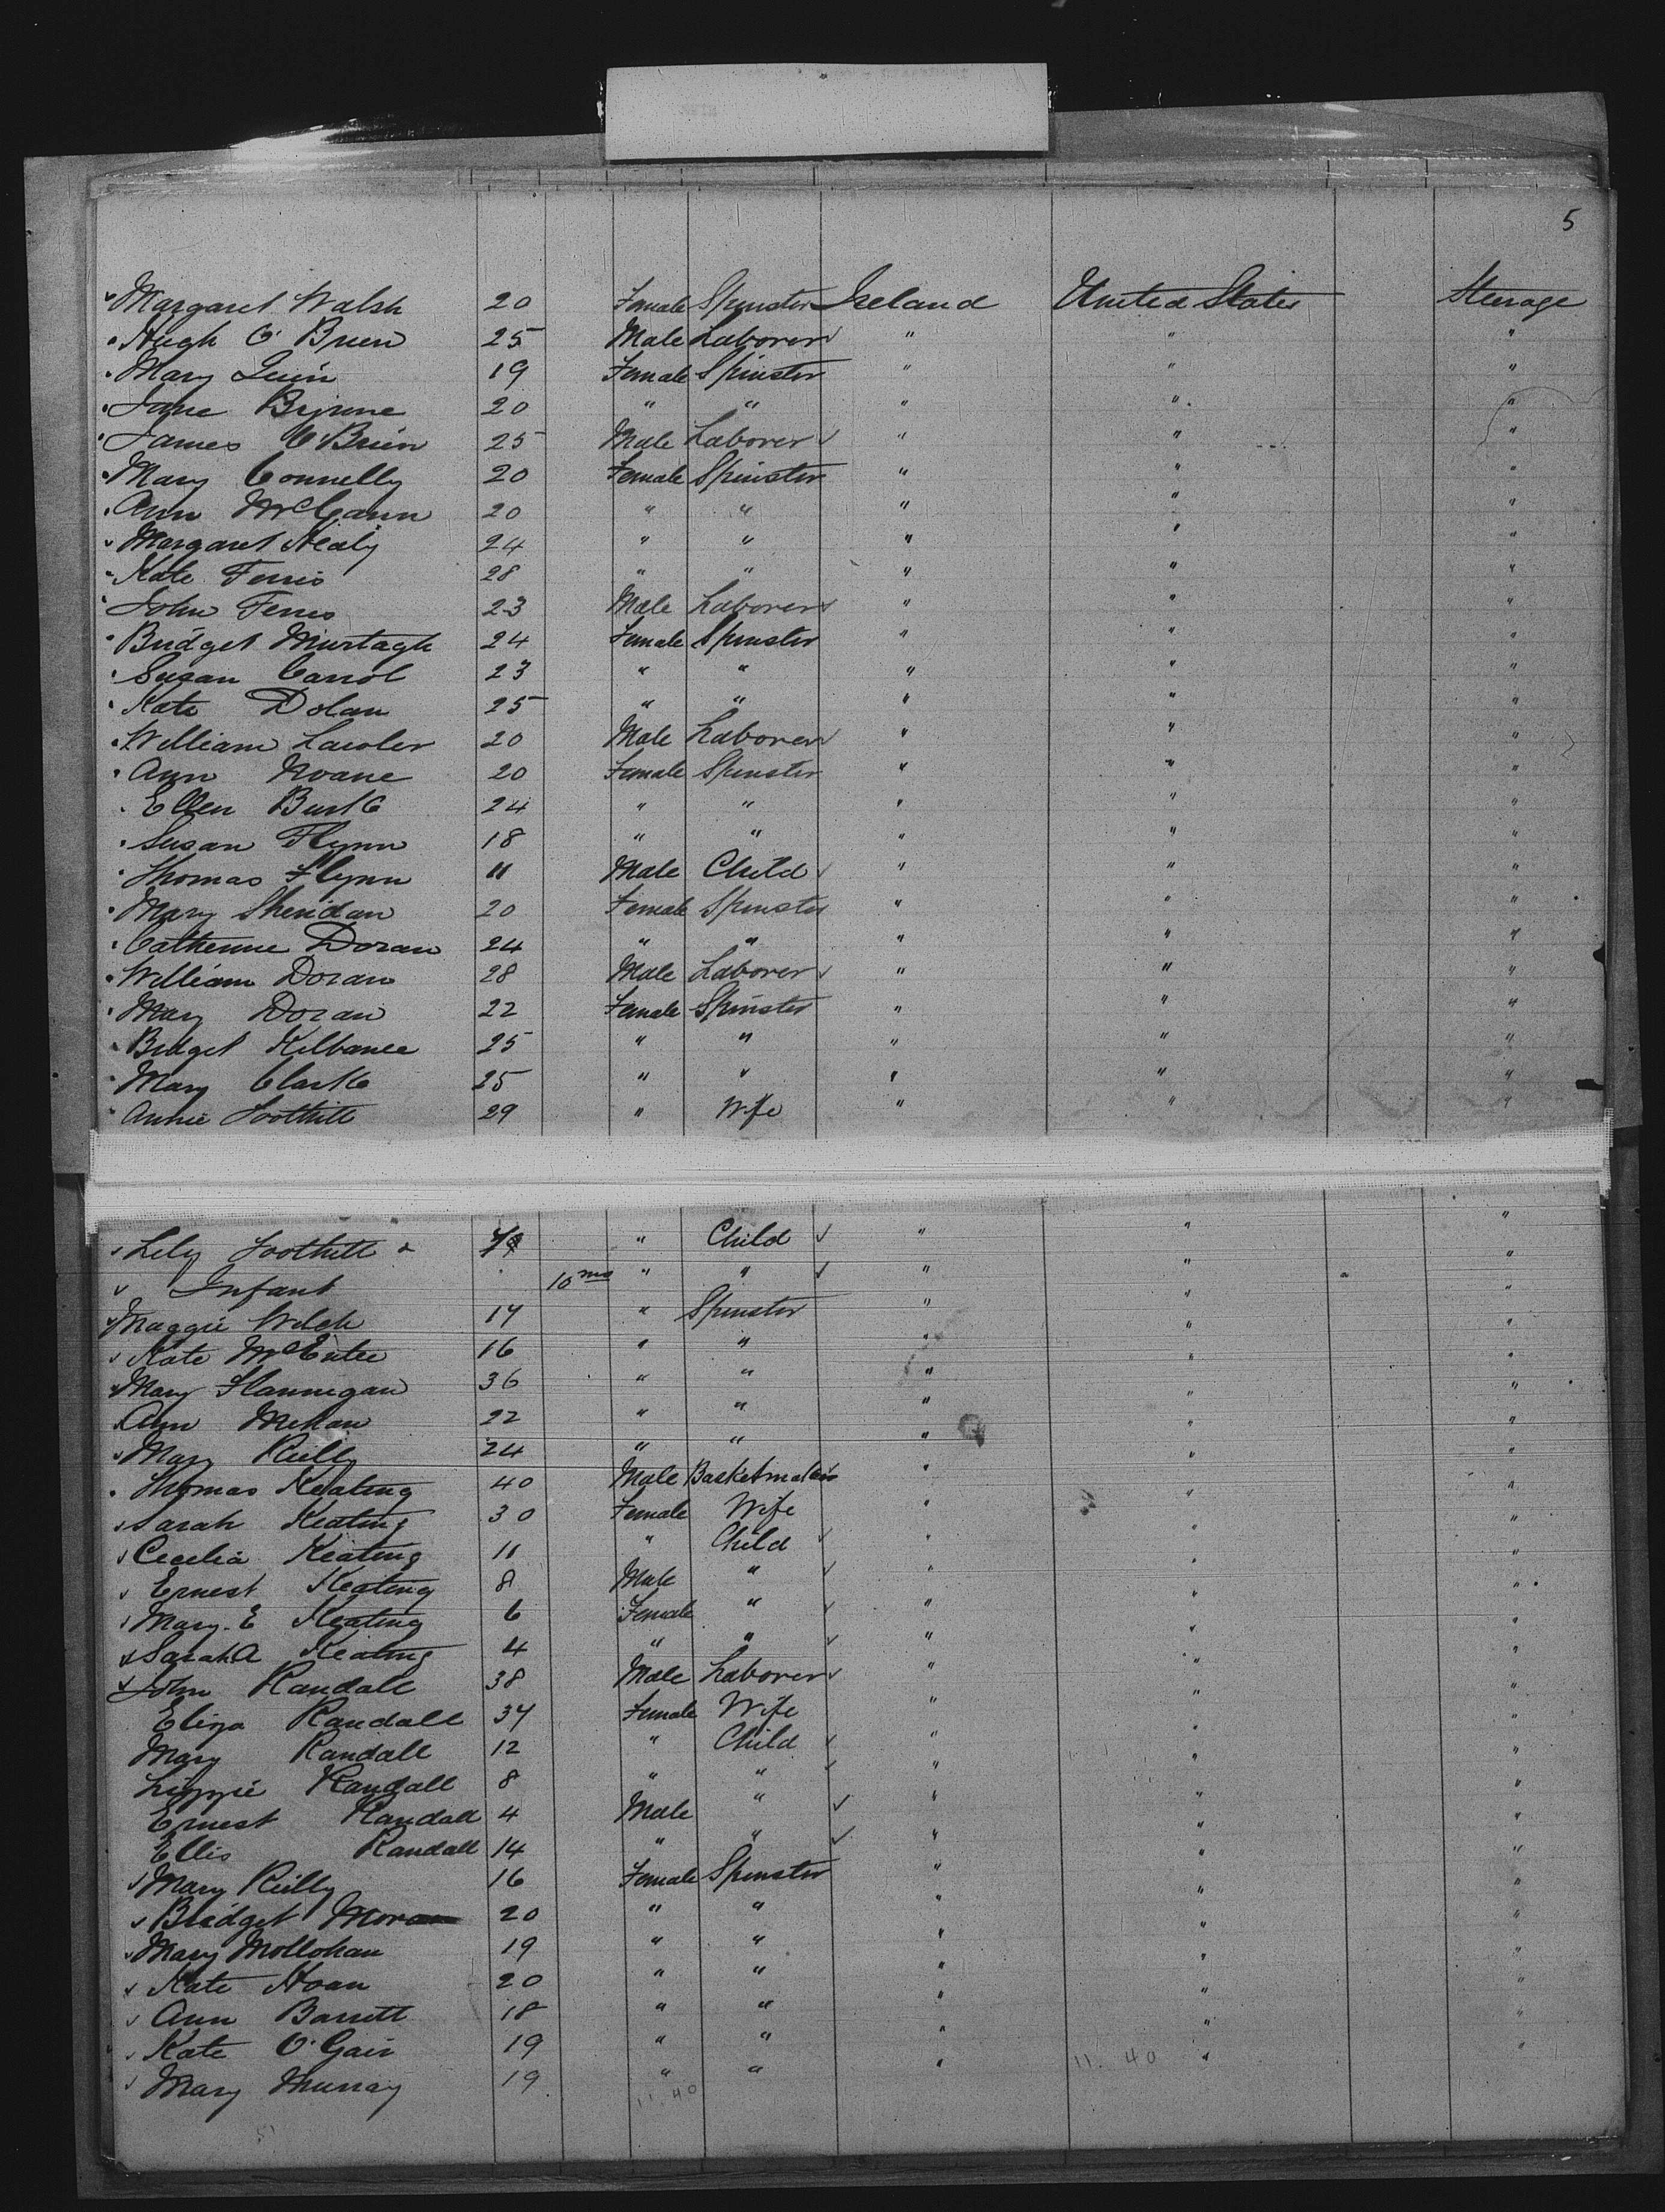 5
Margaret Walsh 20 Female Spinster Ireland United States Steerage
Hugh O'Brien 25 Male Laborer " " "
Mary Quin 19 Female Spinster " " "
Jane Byrne 20 " " " " "
James O'Brien 25 Male Laborer " " "
Mary Connelly 20 Female Spinster " " "
Ann McCann 20 " " " " "
Margaret Healy 24 " " " " "
Kate Ferris 28 " " " " "
John Ferris 23 Male Laborer " " "
Bridget Murtagh 24 Female Spinster " " "
Susan Carrol 23 " " " " "
Kate Dolan 25 " " " " "
William Lawler 20 Male Laborer " " "
Ann Noane 20 Female Spinster " " "
Ellen Burke 24 " " " " "
Susan Flynn 18 " " " " "
Thomas Flynn 11 Male Child " " "
Mary Sheridan 20 Female Spinster " " "
Catherine Doran 24 " " " " "
William Doran 28 Male Laborer " " "
Mary Doran 22 Female Spinster " " "
Bridget Kilbane 25 " " " " "
Mary Clarke 25 " " " " "
Annie Toothill 29 " Wife " " "
Lily Toothill " Child " " "
Infant 10 mos " " " " "
Maggie Welsh 17 " Spinster " " "
Kate McEntee 16 " " " " "
Mary Flannigan 36 " " " " "
Ann Mehan 22 " " " " "
Mary Reilly 24 " " " " "
Thomas Keating 40 Male Basketmaker " " "
Sarah Keating 30 Female Wife " " "
Cecelia Keating 11 " Child " " "
Ernest Keating 8 Male " " " "
Mary E Keating 6 Female " " " "
Sarah A Keating 4 " " " " "
John Randall 38 Male Laborer " " "
Eliza Randall 37 Female Wife " " "
Mary Randall 12 " Child " " "
Lizzie Randall 8 " " " " "
Ernest Randall 4 Male " " " "
Ellis Randall 14 " " " " "
Mary Reilly 16 Female Spinster " " "
Bridget Moran 20 " " " " "
Mary Mollohan 19 " " " " "
Kate Hoan 20 " " " " "
Ann Barrett 18 " " " " "
Kate O'Gair 19 " " " " "
Mary Murray 19 " " " " "
11.40 11.40